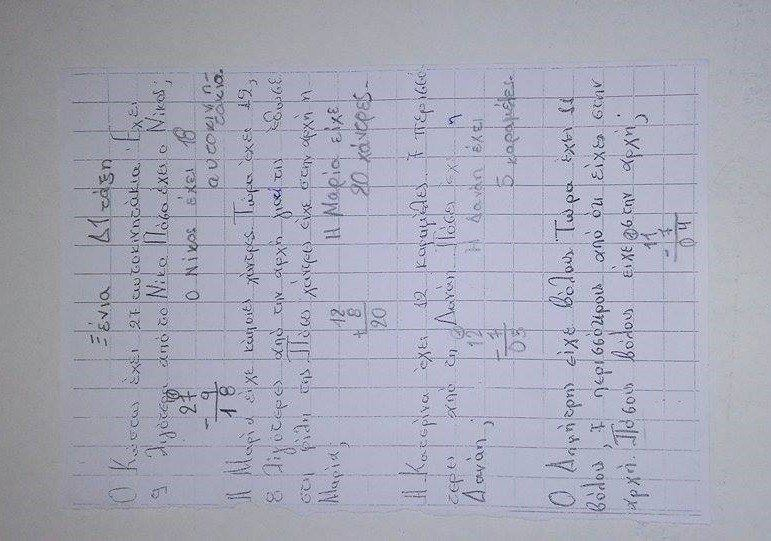 Ξένια Δ1 τάξη
Ο Κώστας έχει 27 αυτοκινητάκια. Έχει
9 λιγότερα από το Νίκο. Πόσα έχει ο Νίκος;
27
- 9
18
Ο Νίκος έχει 18
αυτοκινη-
τάκια.
Η Μαρία είχε κάποιες χάντρες. Τώρα έχει 12,
8 λιγότερες από την αρχή γιατί της έδωσε
στη φίλη της. Πόσες χάντρες είχε στην αρχή η
Μαρία;
12
+ 8
20
Η Μαρία είχε
20 χάντρες.
Η Κατερίνα έχει 12 καραμέλες, 7 περισσό-
τερες από τη Δανάη. Πόσες έχει η
Δανάη;
12
- 7
05
Η Δανάη έχει
5 καραμέλες.
Ο Δημήτρης είχε βόλους. Τώρα έχει 11
βόλους, 7 περισσότερους από ότι είχε στην
αρχή. Πόσους βόλους είχε στην αρχή;
11
- 7
04